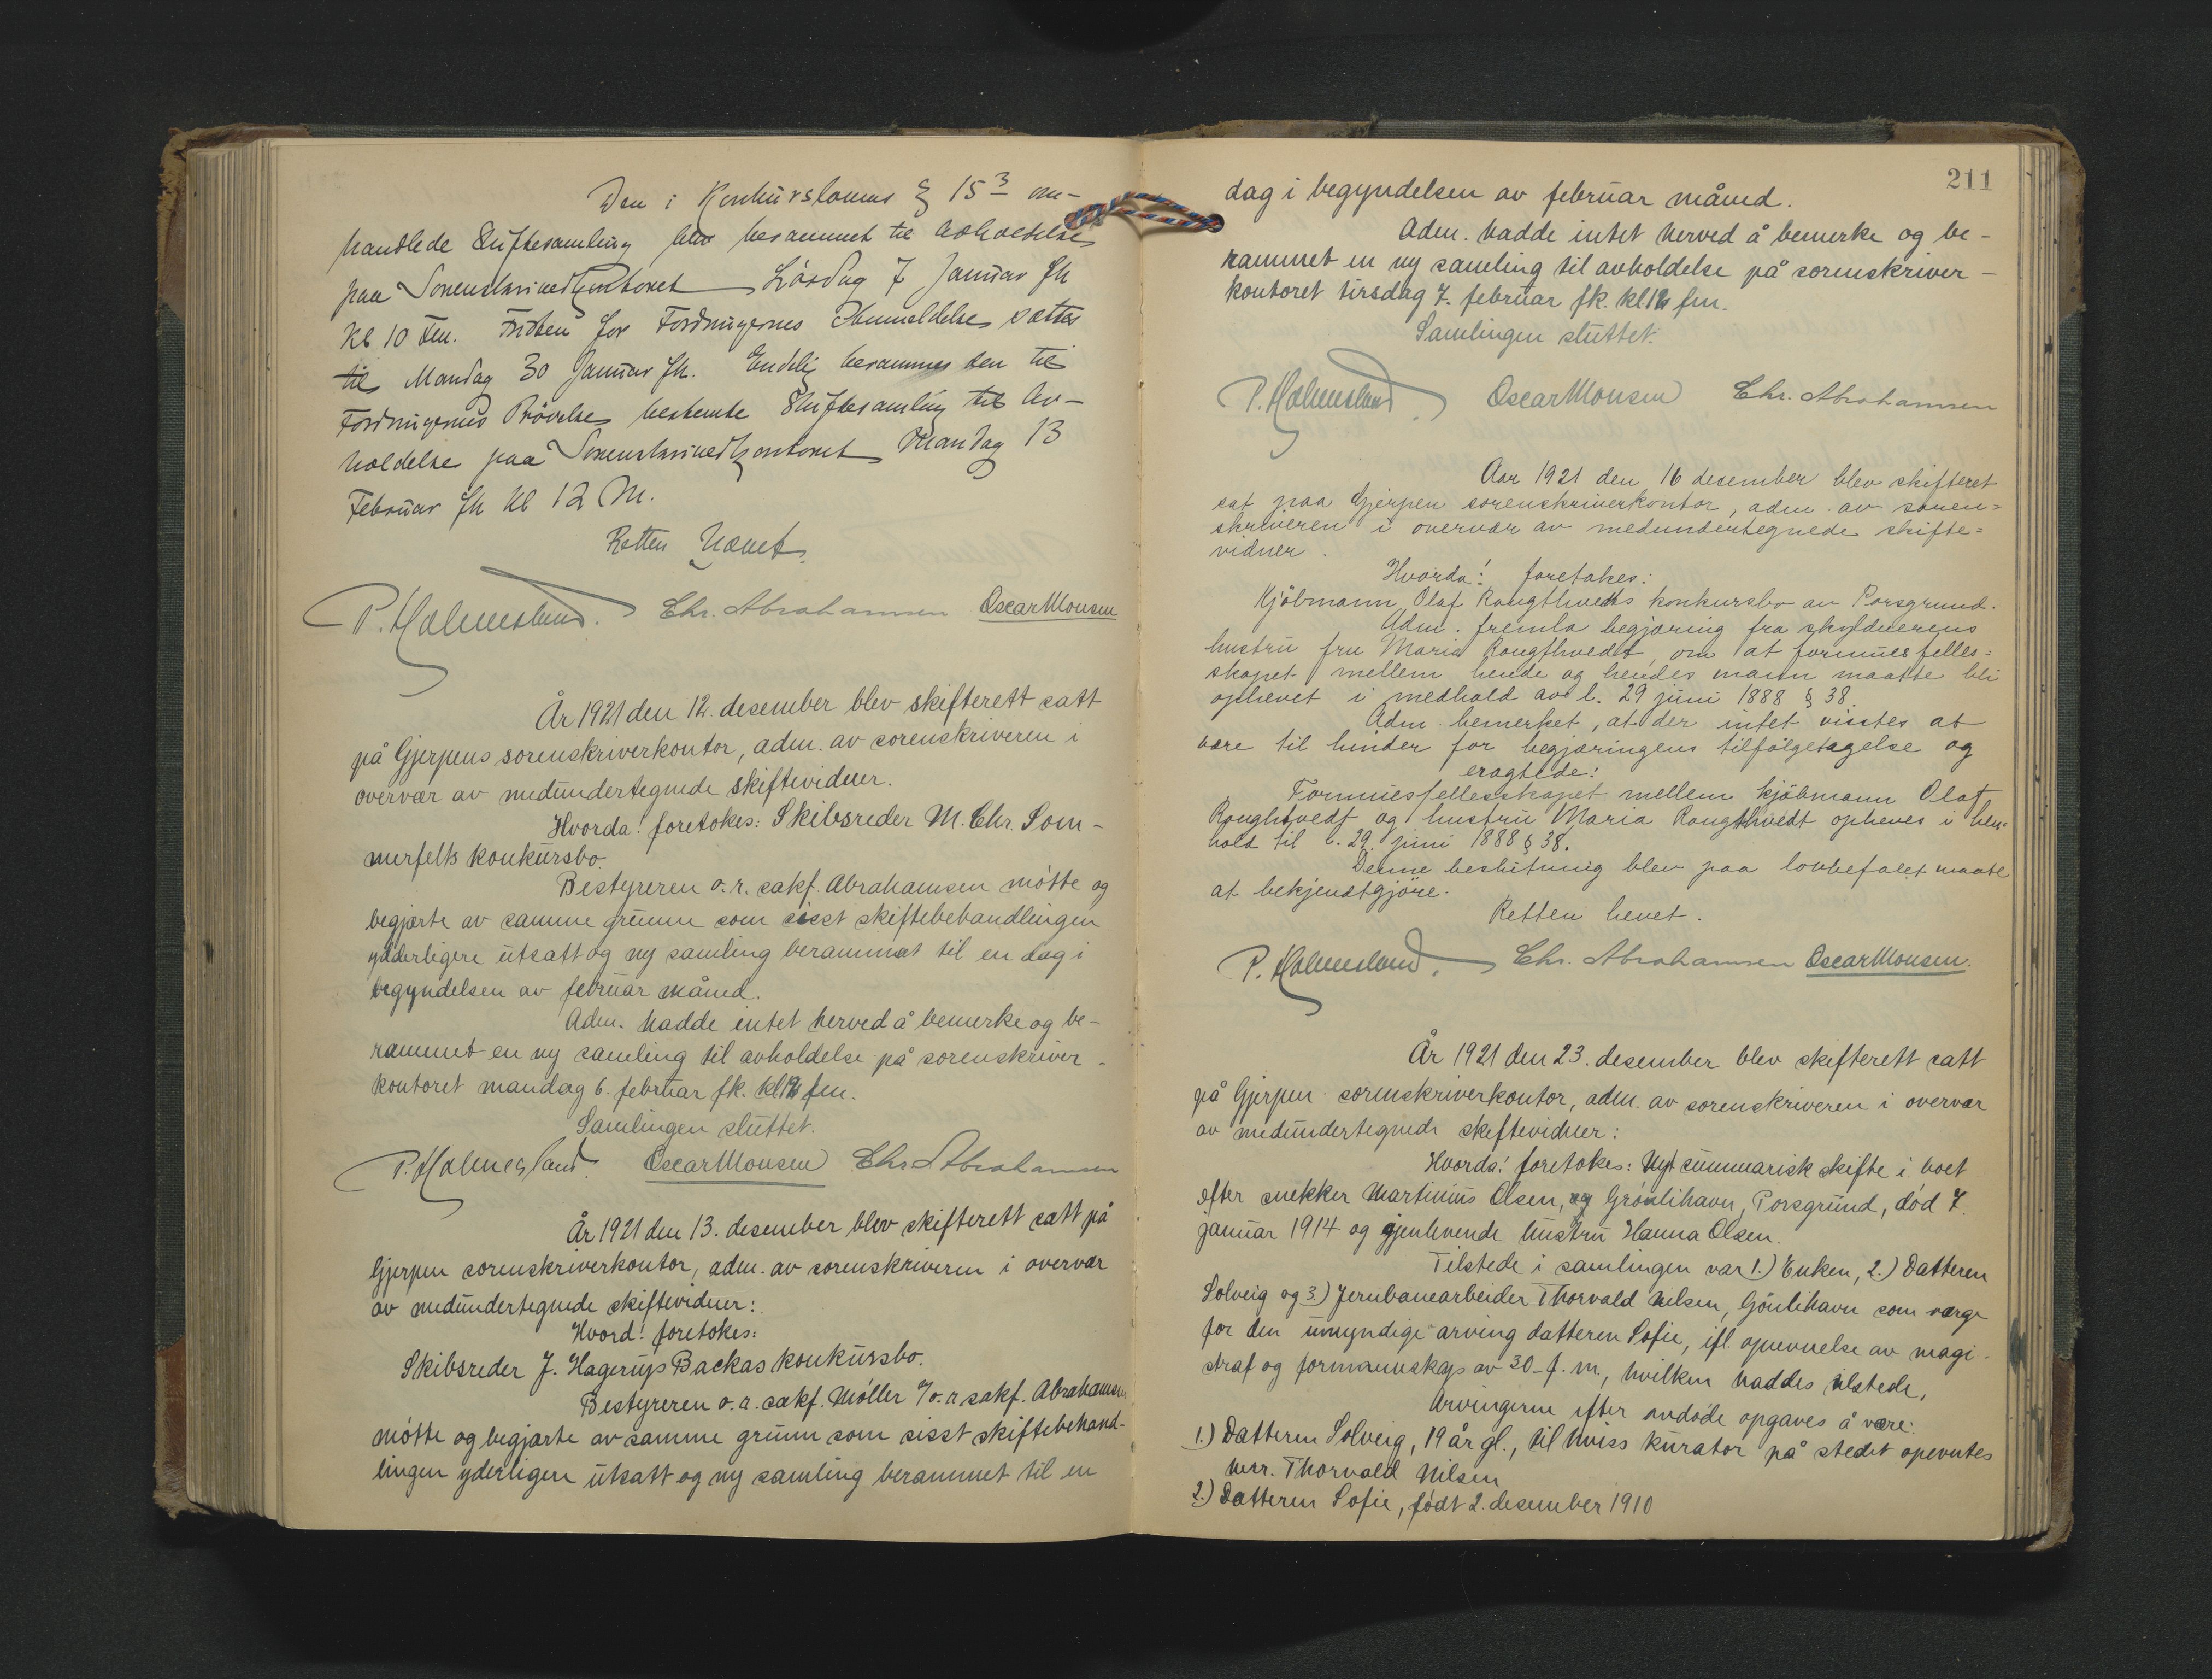 Den i Konkurslovens § 15 3 om-
handlede Skiftesamling blev berammet til Avholdelse
paa Sorenskriverkontoret Lördag 7 Januar fk
Kl 10 Fm. Fristen for Fordringernes Anmeldelse sættes
til Mandag 30 Januar fk. Endelig berammes den til
Fordringernes Prövelse bestemte Skiftesamling til Av-
holdelse paa Sorenskriverkontoret Mandag 13
Februar fk Kl 12 M.
Retten hævet.
P. Holmesland. Chr. Abrahamsen Oscar Monsen
År 1921 den 12. desember blev skifterett satt
på Gjerpens sorenskriverkontor, adm. av sorenskriveren i
overvær av medundertegnede skiftevidner.
Hvorda! foretokes: Skibsreder M. Chr. Som-
merfelts konkursbo.
Bestyreren o.r. sakf. Abrahamsen møtte og
begjærte av samme grunn som sisst skiftebehandlingen
ydderligere utsatt og ny samling berammet til en dag i
begyndelsen av februar måned.
Adm. hadde intet herved å bemerke og be-
rammet en ny samling til avholdelse på sorenskriver-
kontoret mandag 6. februar fk. kl fm.
Samlingen sluttet.
P. Holmesland. Oscar Monsen Chr. Abrahamsen
År 1921 den 13. desember blev skifterett satt på
Gjerpen sorenskriverkontor, adm. av sorenskriveren i overvær
av medundertegnede skiftevidner:
Hvord! foretokes:
Skibsreder J. Hagerups Backas konkursbo.
Bestyreren o.r. sakf. Møller v/o.r. sakf. Abrahamsen
møtte og begjærte av samme grunn som sisst skiftebehand-
lingen yderligere utsatt og ny samling berammet til en
211
dag i begyndelsen av februar måned.
Adm. hadde intet herved å bemerke og be-
rammet en ny samling til avholdelse på sorenskriver-
kontoret tirsdag 7. februar fk. kl fm.
Samlingen sluttet.
P. Holmesland. Oscar Monsen Chr. Abrahamsen
Aar 1921 den 16 december blev skifteret
sat paa Gjerpen sorenskriverkontor, adm. av soren=
skriveren i overvær av medundertegnede skifte=
vidner.
Hvorda! foretokes:
Kjöbmann Olaf Rougthvedts konkursbo av Porsgrund.
Adm. fremla begjæring fra skyldnerens
hustru fru Maria Rougthvedt, om at formuesfelles=
skapet mellem hende og hendes mann maatte bli
ophevet i medhold av l. 29 juni 1888 § 38.
Adm. bemerket, at der intet visstes at
være til hinder for begjæringens tilfölgetagelse og
eragtede:
Formuesfellesskapet mellem kjöbmann Olaf
Roughtvedt og hustru Maria Rougthvedt opheves i hen-
hold til l. 29. juni 1888 § 38.
Denne beslutning blev paa lovbefalet maate
at bekjendtgjöre.
Retten hevet.
P. Holmesland. Chr. Abrahamsen Oscar Monsen.
År 1921 den 23. desember blev skifterett satt
på Gjerpen sorenskriverkontor, adm. av sorenskriveren i overvær
av medundertegnede skiftevidner:
Hvorda! foretokes: Nyt summarisk skifte i boet
efter snekker Martinius Olsen, Grønlihavn, Porsgrund, død 7.
januar 1914 og gjenlevende hustru Hanna Olsen.
Tilstede i samlingen var 1.) Enken, 2.) Datteren
Solveig og 3.) Jernbanearbeider Thorvald Nilsen, Gönlihavn som værge
for den umyndige arving datteren Sofie, ifl. opnevnelse av magi-
strat og formannskap av 30 f. m., hvilken haddes tilstede.
Arvingerne efter avdøde opgaves å være:
1.) Datteren Solveig, 19 år gl., til hviss kurator på stedet opevntes
herr. Thorvald Nilsen
2.) Datteren Sofie, født 2. desember 1910